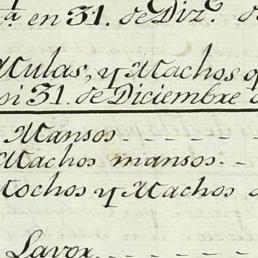 en 31. de Diz.e
Mulas, y Machos
31. de Diciembre
Mansos
Machos mansos
y Machos
Lavor